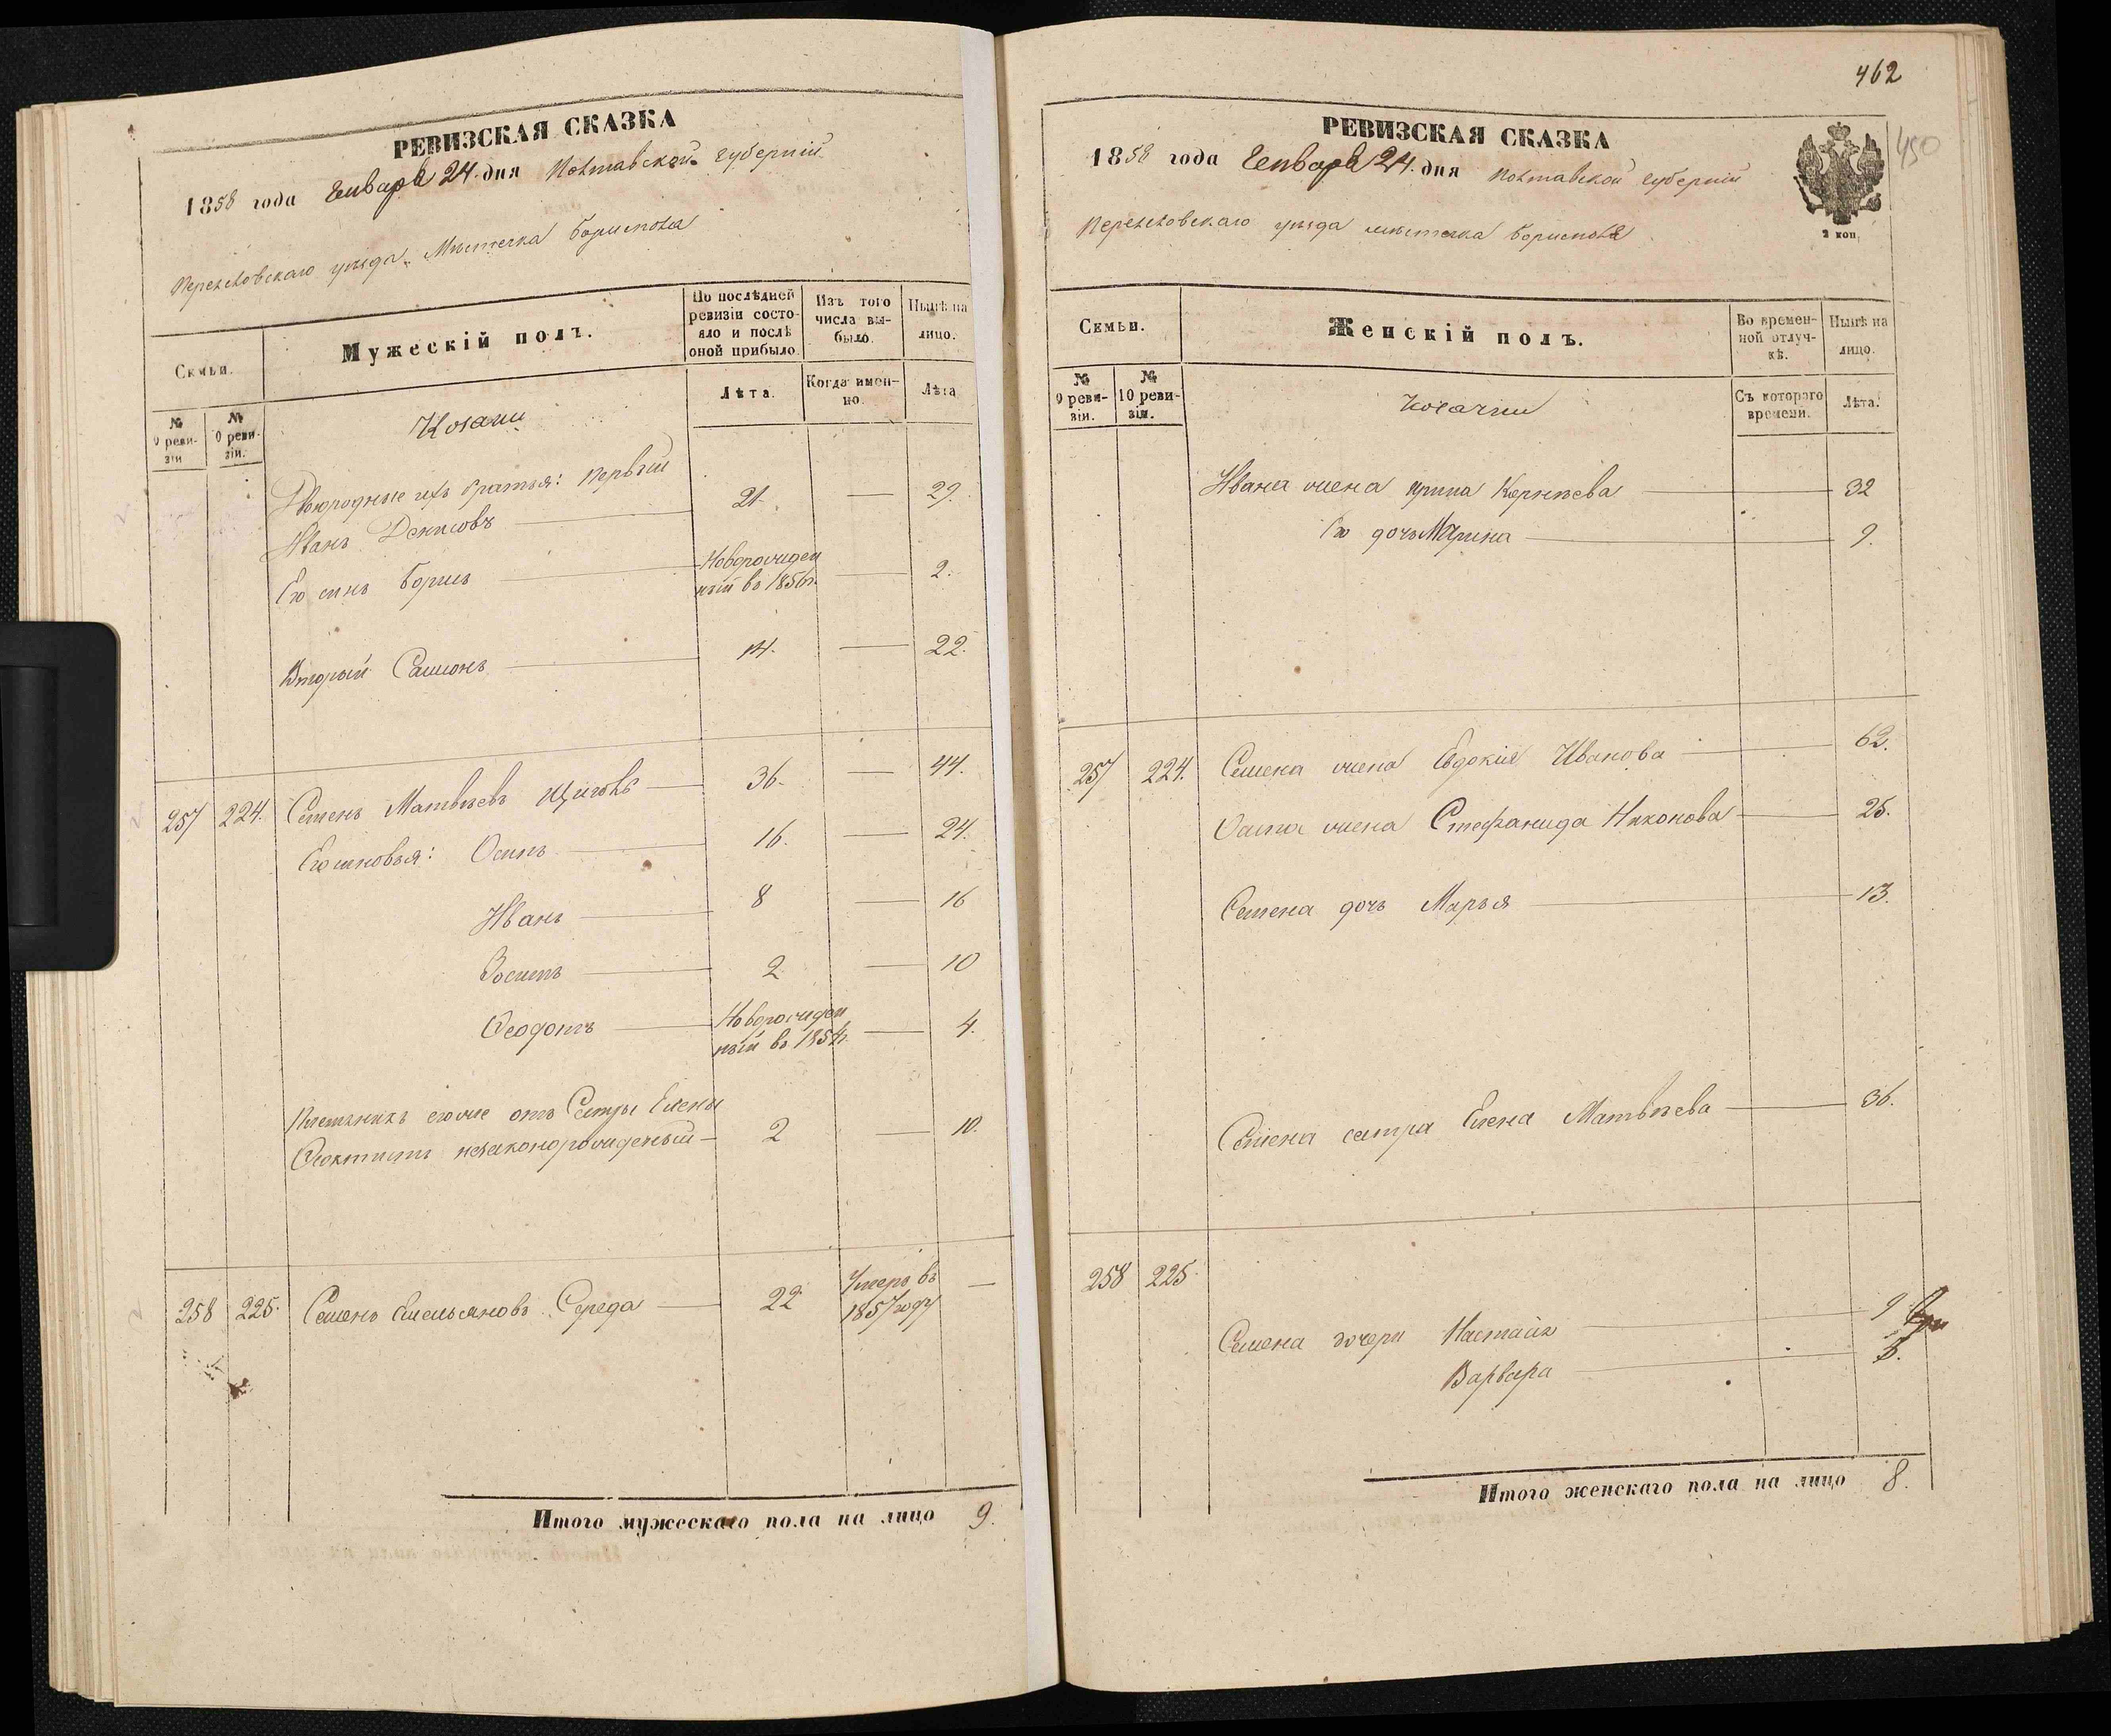 РЕВИЗСКАЯ СКАЗКА
1858 года Генваря 24. дня Полтавской губерніи
Переяловскаго уезда Местечка Борисполя
Семьи.
Мужескій полъ.
По послѣдней ревизіи состояло и послѣ оной прибыло.
Изъ того числа выбыло.
Нынѣ на лицо.
№ 9 ревизіи.
№ 10 ревизіи.
Козаки
Лѣта.
Когда именно.
Лѣта
Двоюродные ихъ братья: Первый
Иванъ Денисовъ 21. — 29.
Его сынъ Борисъ Новорожденный въ 1856 г. — 2.
Вторый Самсонъ 14. — 22.
257 224. Семенъ Матвѣевъ 36. — 44.
Его сыновья: Осипъ 16. — 24.
Иванъ 8 — 16
Зосимъ 2 — 10
Ѳеодотъ Новорожденный въ 1854 г. — 4.
Племяникъ его же отъ Сестры Елены
Ѳеоктистъ незаконорожденый 2 — 10.
258 225. Семенъ Емельяновъ Середа 22 Умеръ въ 1857 году —
Итого мужескаго пола на лицо 9.
462
450
РЕВИЗСКАЯ СКАЗКА
1858 года Генваря 24. дня Полтавской губерніи
2 коп.
Переяловскаго уезда местечка Борисполя
Семьи.
Женскій полъ.
Во временной отлучкѣ.
Нынѣ на лицо.
№ 9 ревизіи.
№ 10 ревизіи.
Козачки
Съ котораго времени.
Лѣта.
Ивана жена Ирина Корнѣева 32
Его дочь Марина 9.
257 224. Семена жена Евдокія Иванова 62.
Осипа жена Стефанида Никонова 25.
Семена дочь Марья 13.
Семена сестра Елена Матвѣева 36.
258 225.
Семена дочери Настасія 9
Варвара
Итого женскаго пола на лицо 8.